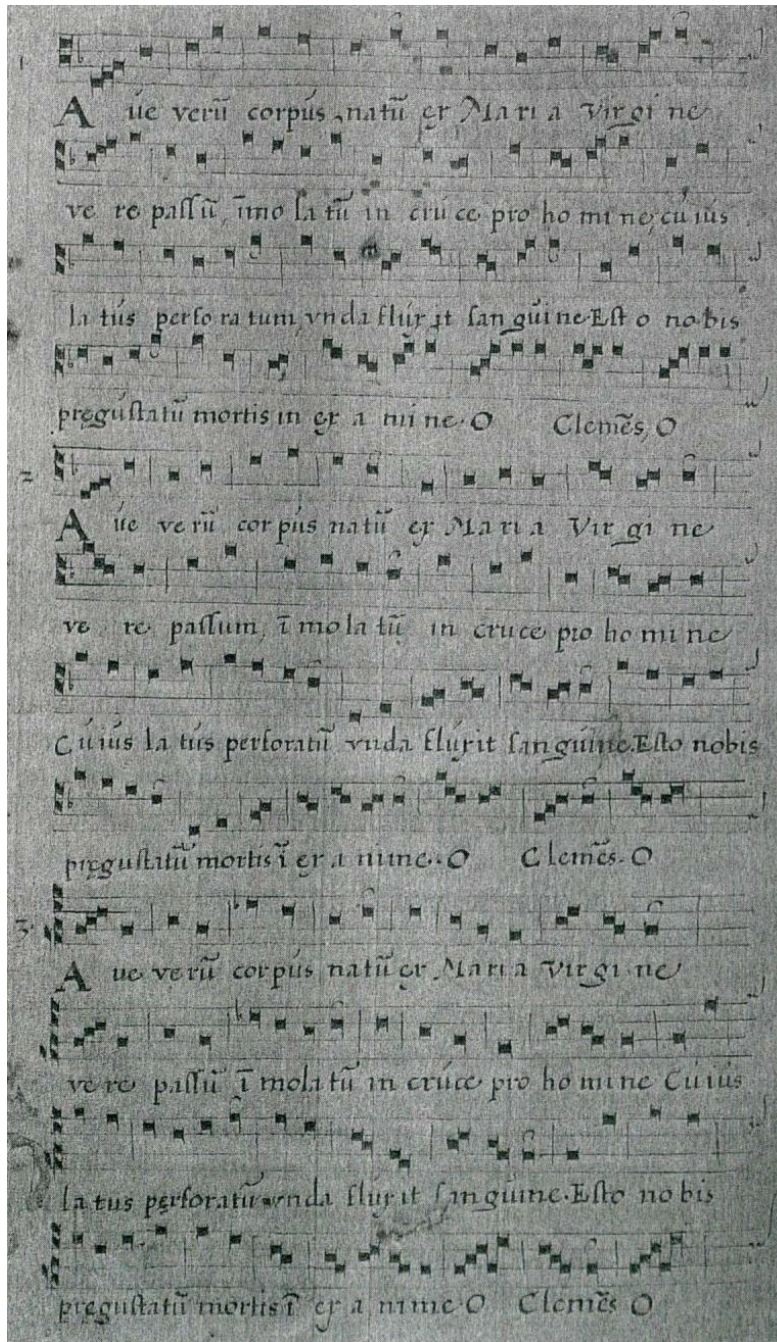 1
Aúe verū corpús natū ex Maria Virgine
ve re passū, īmo la tū in crúce pro ho mi ne, cúiús
la tús perfo ra tum, vnda flúxit sangúine. Est o nobis
pręgústatū mortis in ex a mi ne. O Clemēs, O
2
Aúe ve rū cor pús natū ex Maria Virgine
ve re passum, ī mo la tū in cruce pro ho mi ne
Cúiús la tús perforatū vnda flúxit sangúine. Esto nobis
pręgustatū mortis ī ex a mine. O Clemēs. O
3.
Aue ve rū corpús natū ex Maria Virgi ne
ve re passū ī mola tū in crúce pro ho mine Cúiús
la tus perforatū vnda flúxit sangúine. Esto no bis
pręgustatū mortis ī ex a mine. O Clemēs O